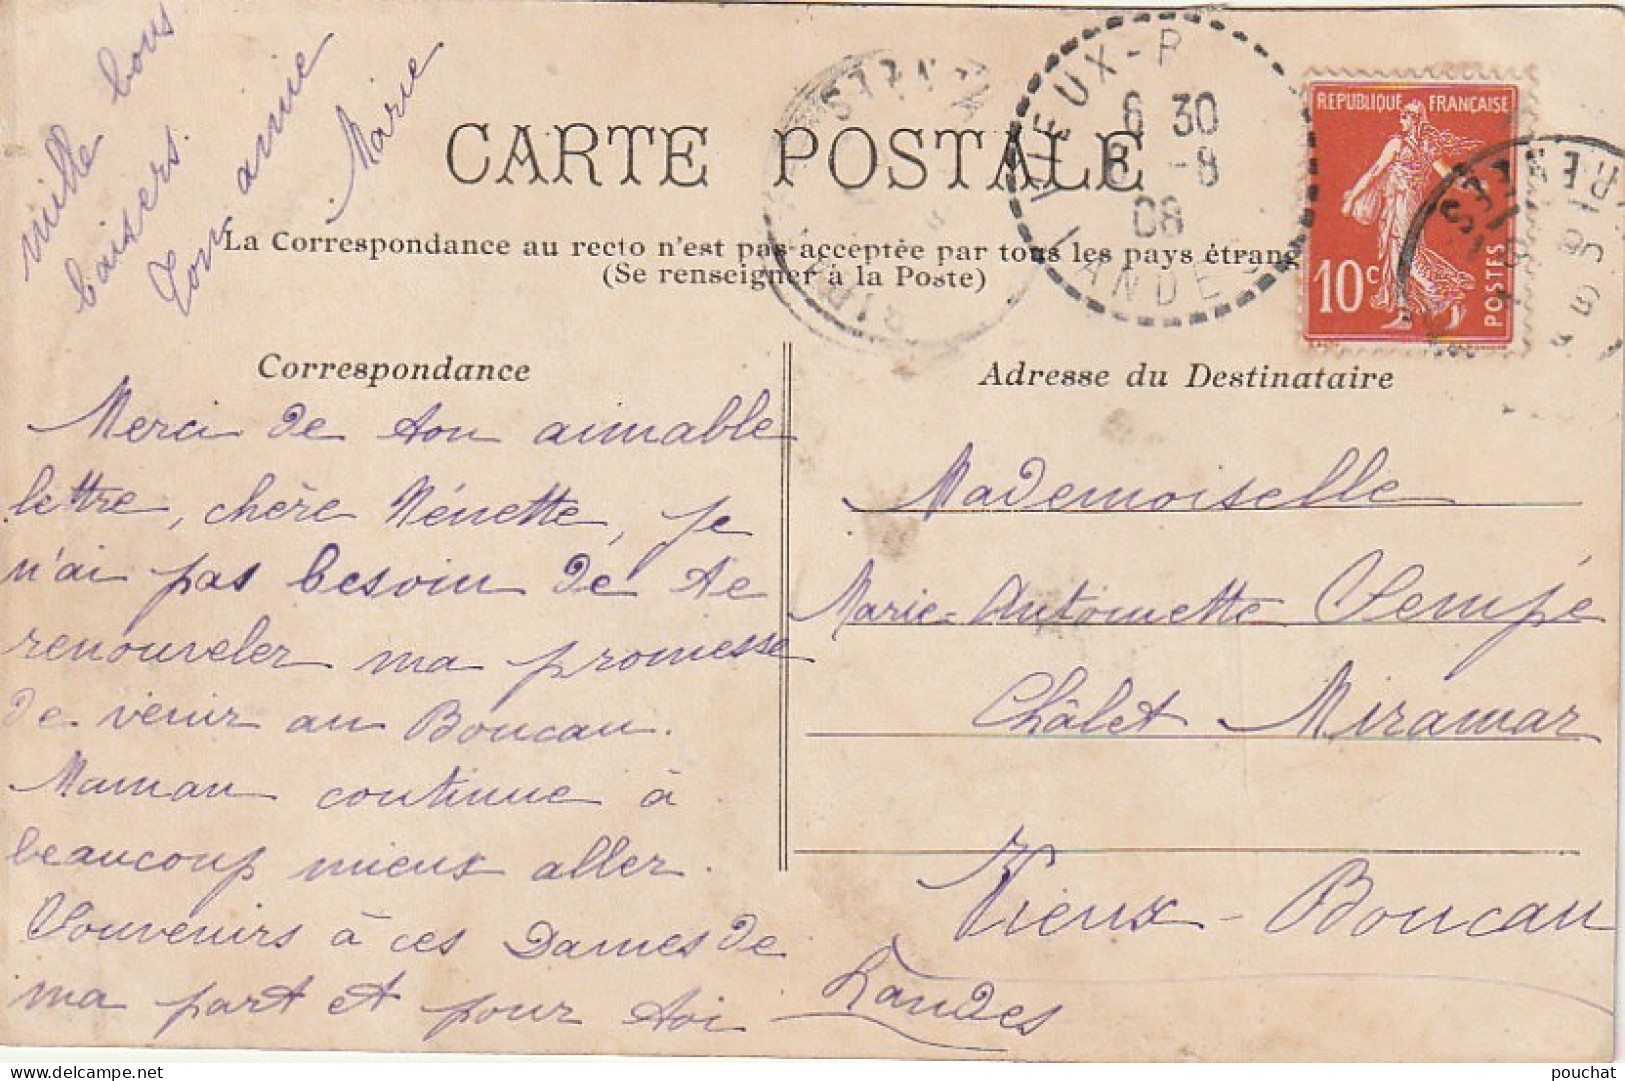 CARTE POSTALE
La Correspondance au recto n'est pas acceptée par tous les pays étrang
(Se renseigner à la Poste)
Correspondance
Merci de ton aimable
lettre, chère Nénette, je
n'ai pas besoin de te
renouveler ma promesse
de venir au Boucau.
Maman continue à
beaucoup mieux aller.
Souvenirs à ces Dames de
ma part et pour toi
mille bons
baisers.
Ton amie
Marie
Adresse du Destinataire
Mademoiselle
Marie-Antoinette Sempé
Châlet Miramar
Vieux-Boucau
Landes
VIEUX-B
6 30
8 -8
08
LANDES
REPUBLIQUE FRANÇAISE
10c
POSTES
pouchat